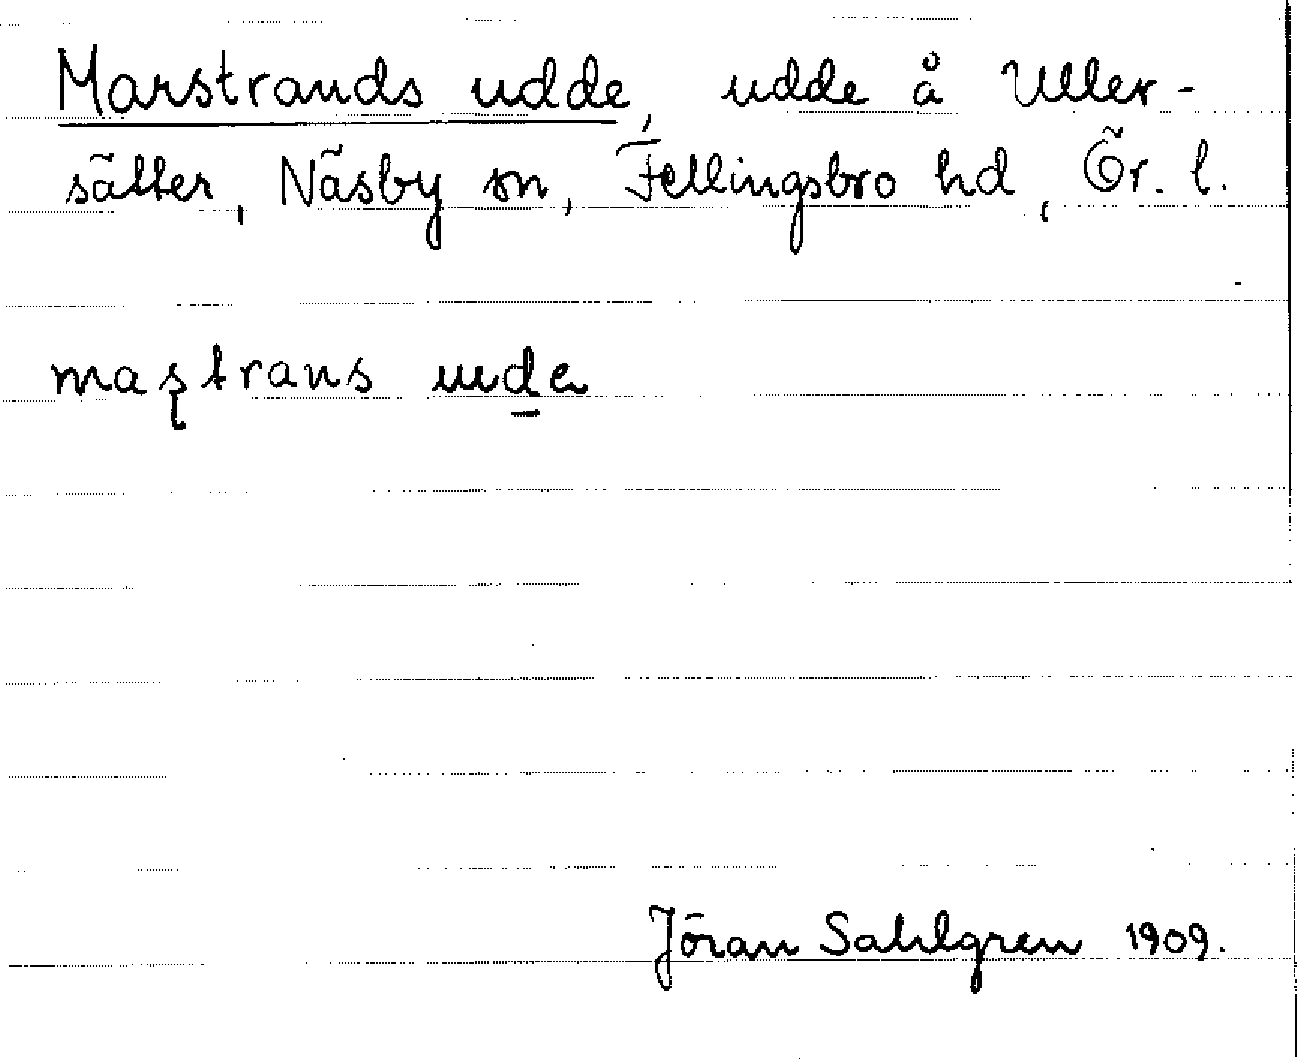 Marstrands udde, udde å Uller-
sätter, Näsby sn, Fellingsbro hd, Ör. l.
maʂtrans
Jöran Sahlgren 1909.